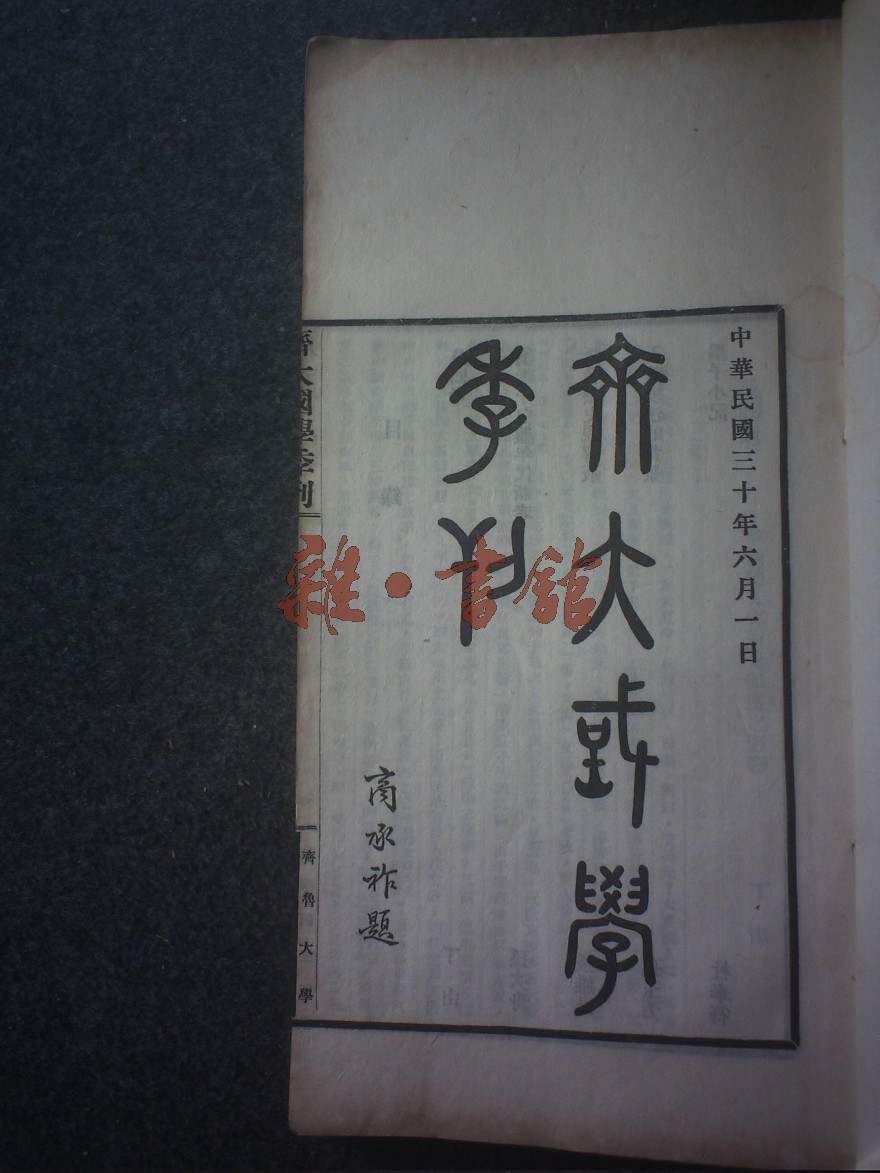 中華民國三十年六月一日
齊大國學
季刊
商承祚題
齊大國學季刊
齊魯大學
雜·書館